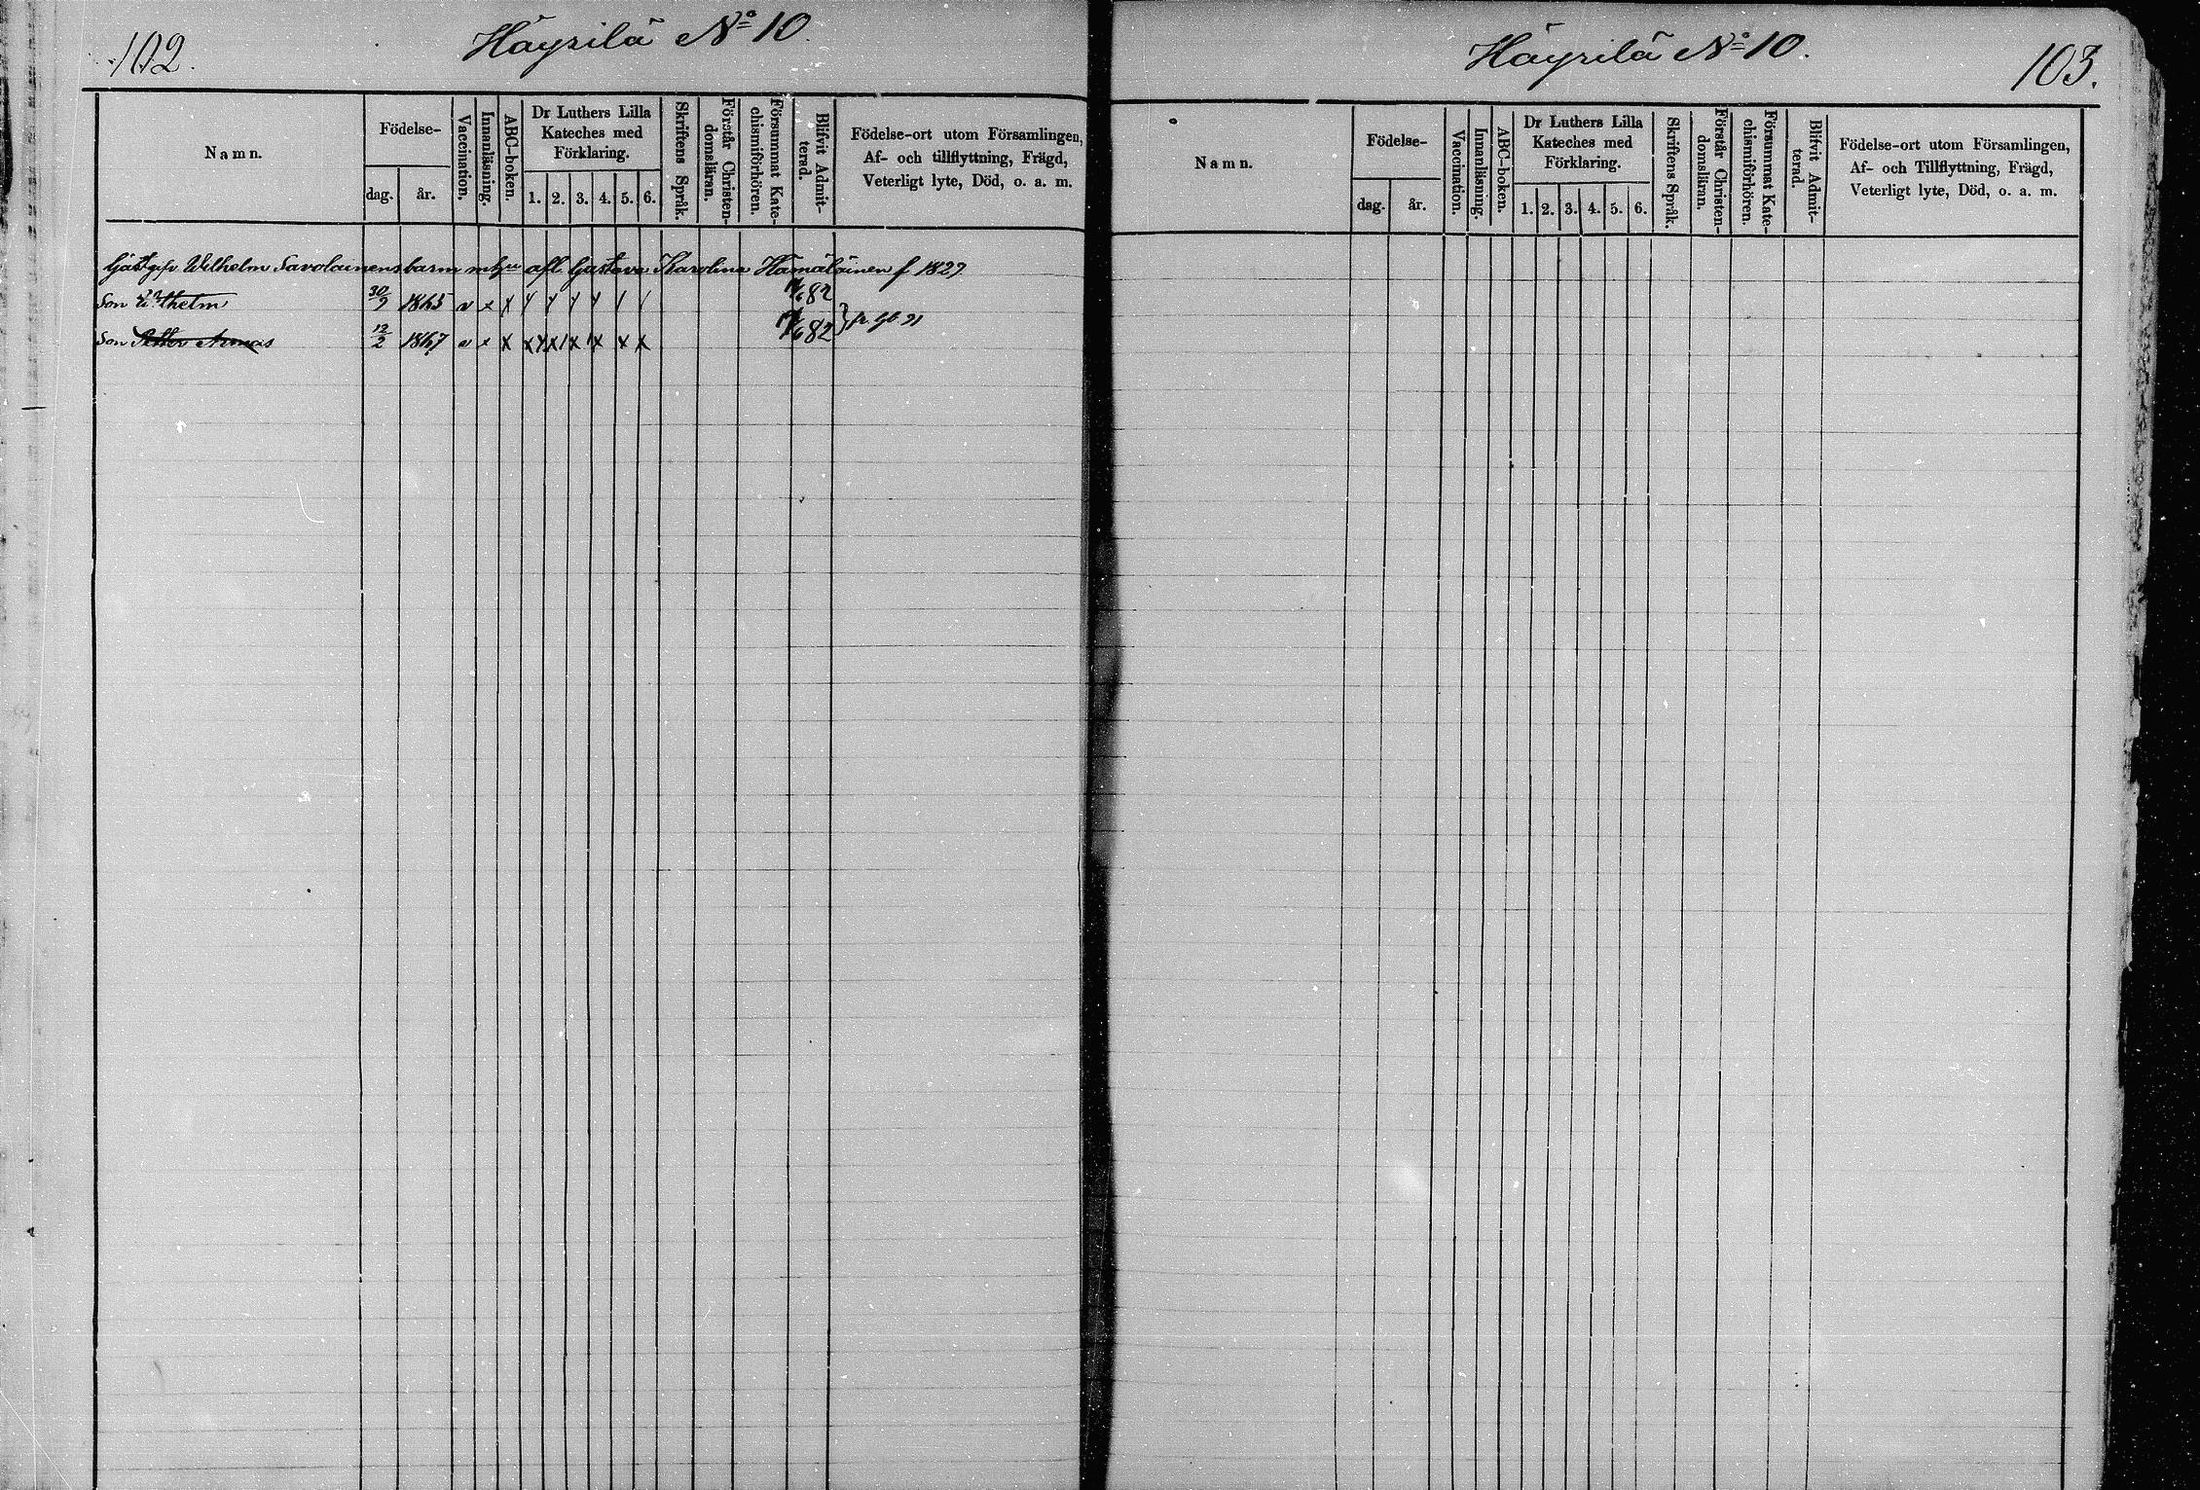 102.
Häyrilä No 10.
Namn.
Födelse-
dag.
år.
Vaccination.
Innanläsning.
ABC-boken.
Dr Luthers Lilla
Kateches med
Förklaring.
1. 2. 3. 4. 5. 6.
Skriftens Språk.
Förstår Christen-
domsläran.
Försummat Kate-
chismiförhören.
Blifvit Admit-
terad.
Födelse-ort utom Församlingen,
Af- och tillflyttning, Frägd,
Veterligt lyte, Död, o. a. m.
Wilhelm Savolainens barn afl Gustava Karolina Hämäläinen f 1827
Son Wilhelm 30/9 1865 v x x 82
Son Armas 12/2 1867 v x x x x x x x x 82
Häyrilä No 10.
103.
Namn.
Födelse-
dag.
år.
Vaccination.
Innanläsning.
ABC-boken.
Dr Luthers Lilla
Kateches med
Förklaring.
1. 2. 3. 4. 5. 6.
Skriftens Språk.
Förstår Christen-
domsläran.
Försummat Kate-
chismiförhören.
Blifvit Admit-
terad.
Födelse-ort utom Församlingen,
Af- och Tillflyttning, Frägd,
Veterligt lyte, Död, o. a. m.